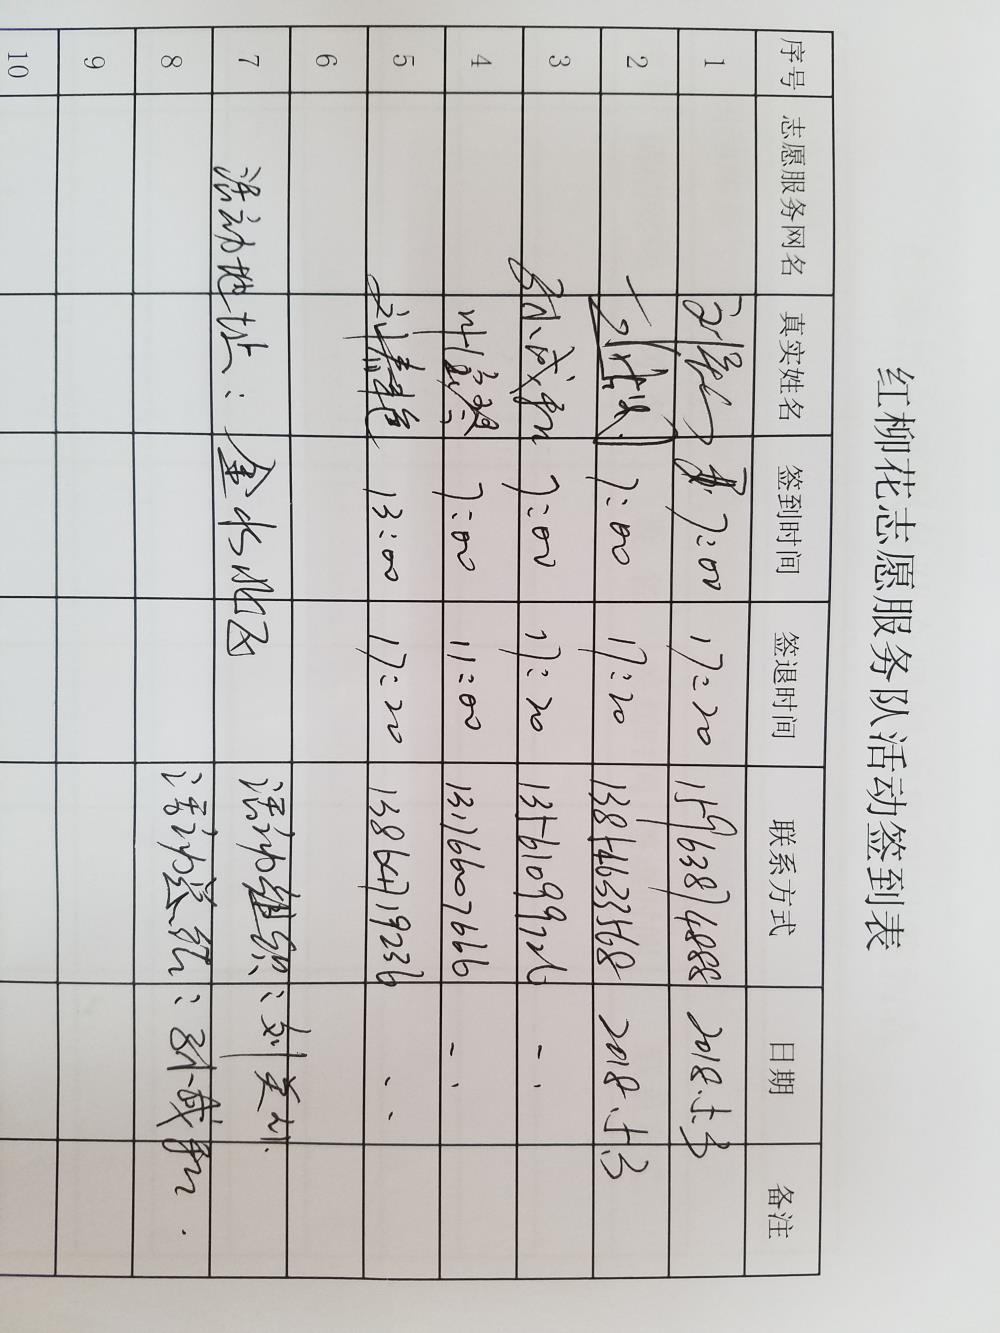 红柳花志愿服务队活动签到表
序号 志愿服务网名 真实姓名 签到时间 签退时间 联系方式 日期 备注
1 7:00 17:20 15963874888 2018.5.3
2 7:00 17:20 13854633568 2018.5.3
3 7:00 17:20 13561099726
4 7:00 11:00 13176607666
5 13:00 17:20 13864719236
6
7 活动地址:金水北区 活动组织:刘美
8 活动总结:孙成
9
10